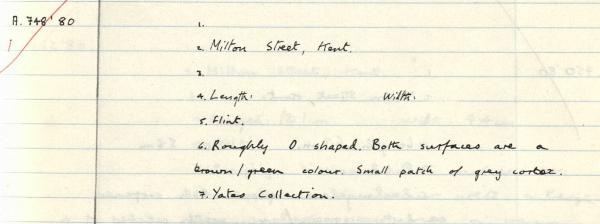 A.748'80
1.
2. Milton Street, Kent.
3.
4. Length. Width.
5. Flint.
6. Roughly O shaped. Both surfaces are a
brown/green colour. Small patch of grey cortex.
7. Yates Collection.